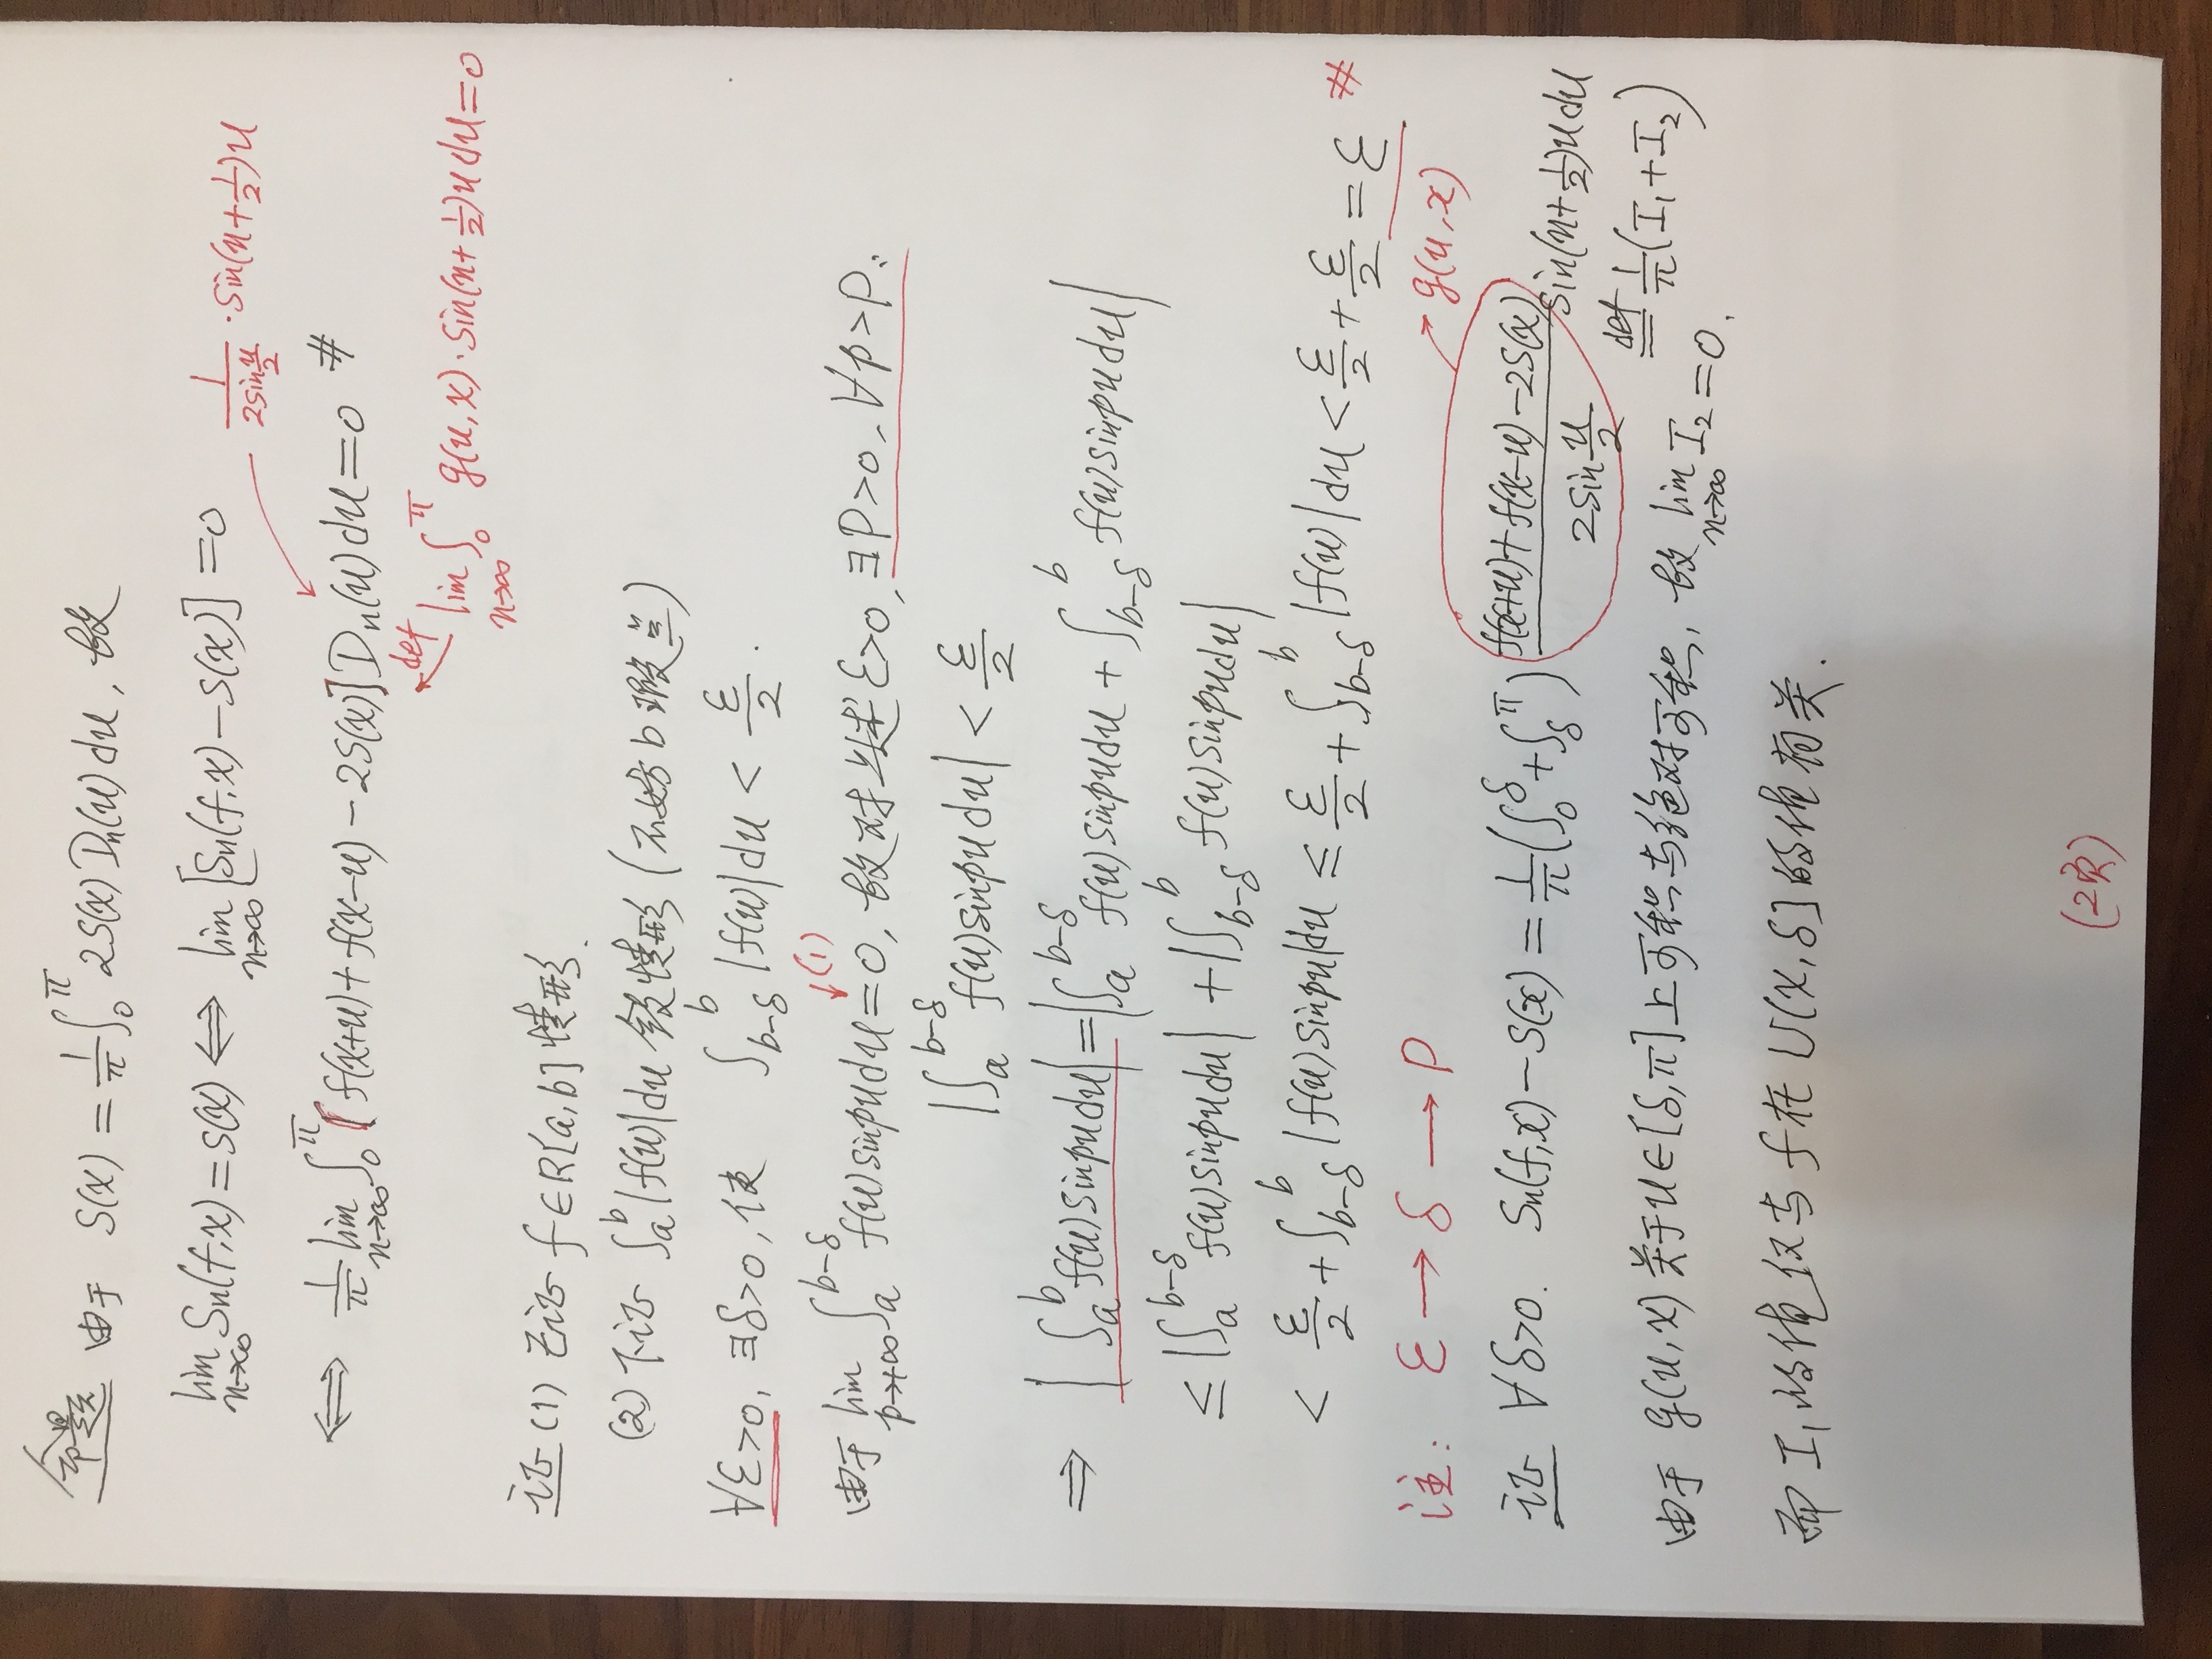 命题 由于 S(x) = 1/π ∫₀^π 2S(x) Dₙ(u) du, 故
lim_{n→∞} Sₙ(f,x) = S(x) ⟺ lim_{n→∞} [Sₙ(f,x) − S(x)] = 0
1/(2sin u/2) · sin(n+1/2)u
⟺ 1/π lim_{n→∞} ∫₀^π [f(x+u) + f(x−u) − 2S(x)] Dₙ(u) du = 0 #
def lim_{n→∞} ∫₀^π g(u,x) · sin(n+1/2)u du = 0
证 (1) 已证 f∈R[a,b] 情形.
(2) 下证 ∫ₐ^b |f(u)| du 敛情形 (不妨 b 瑕点)
∀ε>0, ∃δ>0, 使 ∫_{b−δ}^b |f(u)| du < ε/2 .
↓(1)
由于 lim_{p→+∞} ∫ₐ^{b−δ} f(u) sin pu du = 0, 故对上述 ε>0, ∃P>0, ∀p>P:
|∫ₐ^{b−δ} f(u) sin pu du| < ε/2
⇒ |∫ₐ^b f(u) sin pu du| = |∫ₐ^{b−δ} f(u) sin pu du + ∫_{b−δ}^b f(u) sin pu du|
≤ |∫ₐ^{b−δ} f(u) sin pu du| + |∫_{b−δ}^b f(u) sin pu du|
< ε/2 + ∫_{b−δ}^b |f(u) sin pu| du ≤ ε/2 + ∫_{b−δ}^b |f(u)| du < ε/2 + ε/2 = ε #
注: ε → δ → P
→ g(u,x)
证 ∀δ>0. Sₙ(f,x) − S(x) = 1/π (∫₀^δ + ∫_δ^π) (f(x+u) + f(x−u) − 2S(x))/(2sin u/2) sin(n+1/2)u du
def= 1/π (I₁ + I₂)
由于 g(u,x) 关于 u∈[δ,π] 上可积与绝对可积, 故 lim_{n→∞} I₂ = 0.
而 I₁ 的值仅与 f 在 U(x,δ] 的值有关.
(2页)